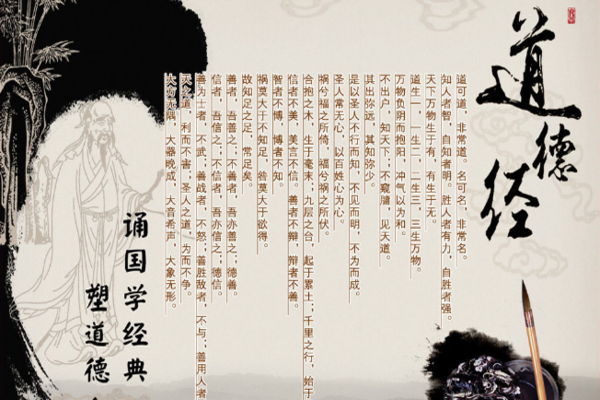 道德经
道可道，非常道。名可名，非常名。
知人者智，自知者明。胜人者有力，自胜者强。
天下万物生于有，有生于无。
道生一，一生二，二生三，三生万物。
万物负阴而抱阳，冲气以为和。
不出户，知天下；不窥牖，见天道。
其出弥远，其知弥少。
是以圣人不行而知，不见而明，不为而成。
圣人常无心，以百姓心为心。
祸兮福之所倚，福兮祸之所伏。
合抱之木，生于毫末；九层之台，起于累土；千里之行，始于
信者不美，美言不信。善者不辩，辩者不善。
智者不博，博者不知。
祸莫大于不知足，咎莫大于欲得。
故知足之足，常足矣。
善者，吾善之；不善者，吾亦善之；德善。
信者，吾信之；不信者，吾亦信之；德信。
善为士者，不武；善战者，不怒；善胜敌者，不与；善用人者
天之道，利而不害；圣人之道，为而不争。
大方无隅，大器晚成，大音希声，大象无形。
诵国学经典
塑道德